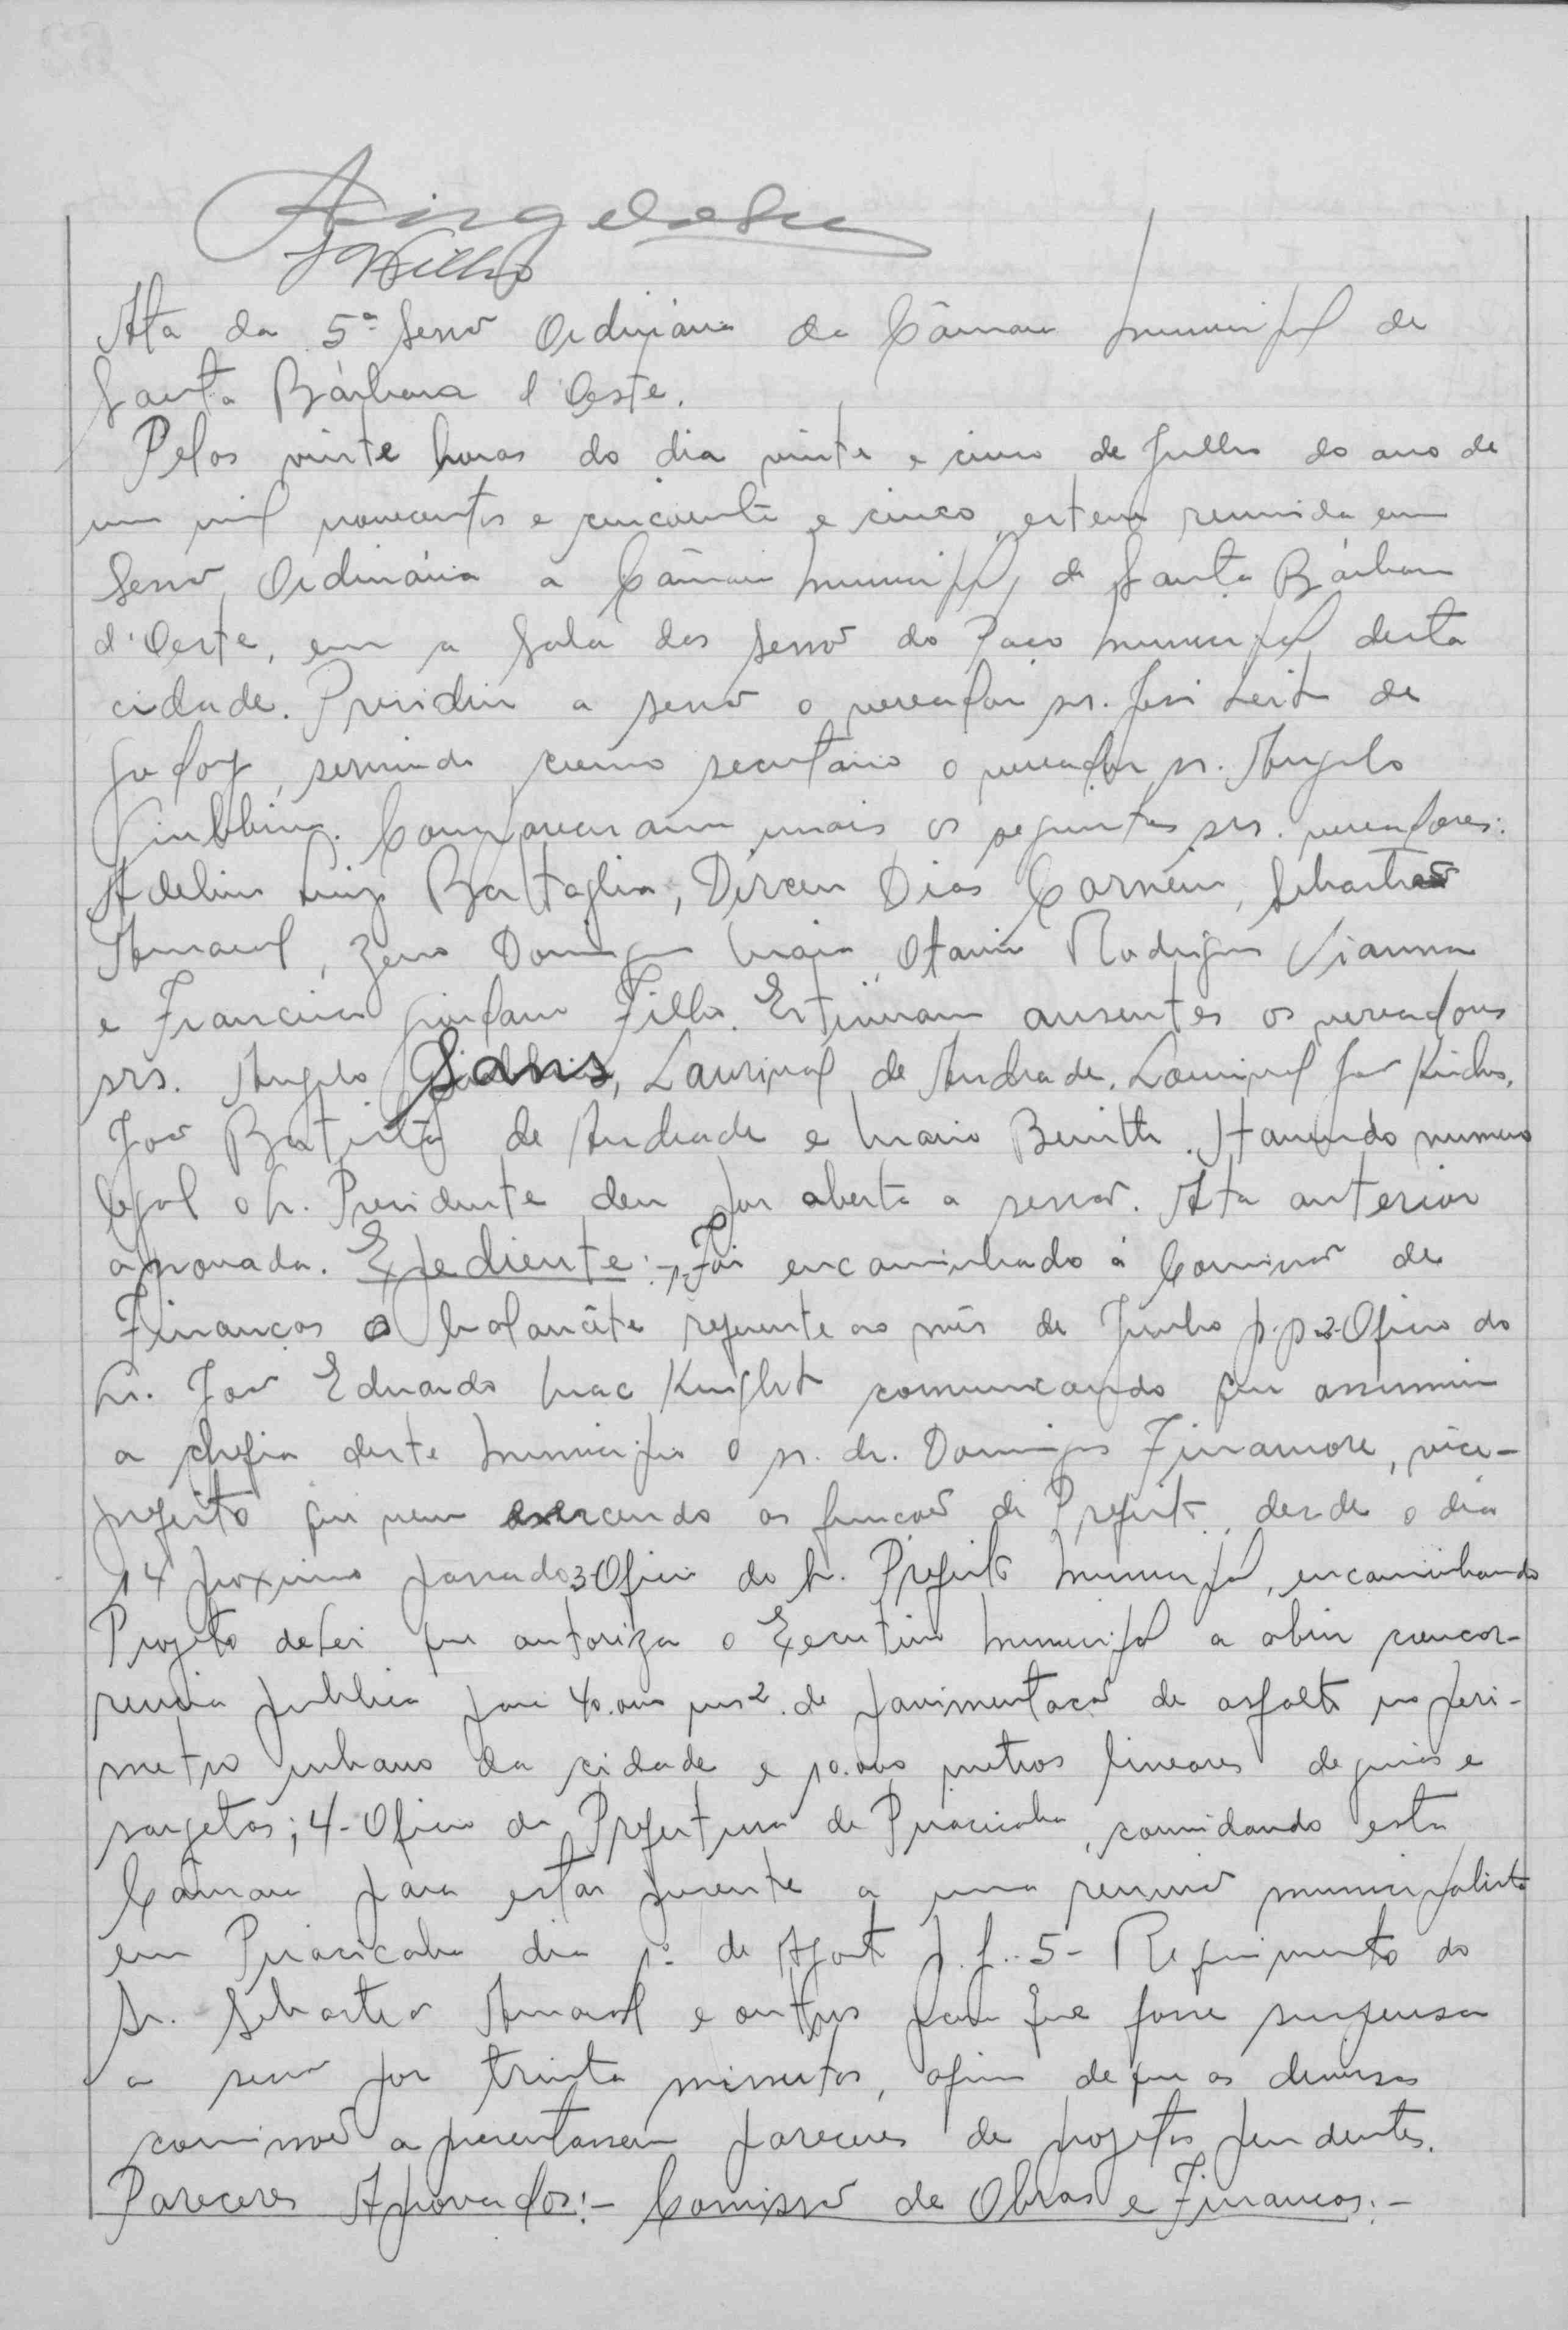 Ata da 5ª Sessão Ordinária da Câmara Municipal de
Santa Bárbara d'Oeste.
Pelas vinte horas do dia vinte e cinco de Julho do ano de
um mil novecentos e cincoenta e cinco, esteve reunida em
Sessão Ordinária a Câmara Municipal de Santa Bárbara
d'Oeste, em a Sala das Sessão do Paço Municipal desta
cidade. Presidiu a sessão o vereador sr. José Leite de
Godoy, servindo como secretário o vereador sr. Angelo
Giubbina. Compareceram mais os seguintes srs. vereadores:
Adelino Luiz Bartaglia, Dirceu Dias Carneiro, Sebastião
Amaral, Zeno Domingues Maia, Otavio Rodrigues Vianna
e Francisco Giordano Filho. Estiveram ausentes os vereadores
srs. Angelo Sans, Laurival de Andrade, Lourival
João Batista de Andrade e Mario Benitti. Havendo numero
legal o Sr. Presidente deu por aberta a sessão. Ata anterior
aprovada. Expediente:- 1-Foi encaminhado á Comissão de
Finanças o balancête referente ao mês de Junho p.p. 2-Oficio do
Sr. João Eduardo Mac Knight comunicando que assumiu
a chefia deste Municipio o sr. dr. Domingos Finamore, vice-
prefeito que vem exercendo as funções de Prefeito, desde o dia
14 proximo passado 3-Oficio do Sr. Prefeito Municipal, encaminhando
Projeto de Lei que autoriza o Executivo Municipal a abrir concor-
rencia publica para 40.000 ms2. de pavimentação de asfalto no peri-
metro urbano da cidade e 10.000 metros lineares de guias e
sargetas; 4- Oficio da Prefeitura de Piracicaba, convidando esta
Câmara para estar presente a uma reunião municipalista
em Piracicaba dia 1º de Agosto p.f.. 5- Requerimento do
Sr. Sebastião Amaral e outros para que fosse suspensa
a sessão por trinta minutos, afim de que as diversas
comissões apresentassem pareceres de projetos pendentes.
Pareceres Aprovados:- Comissão de Obras e Finanças:-